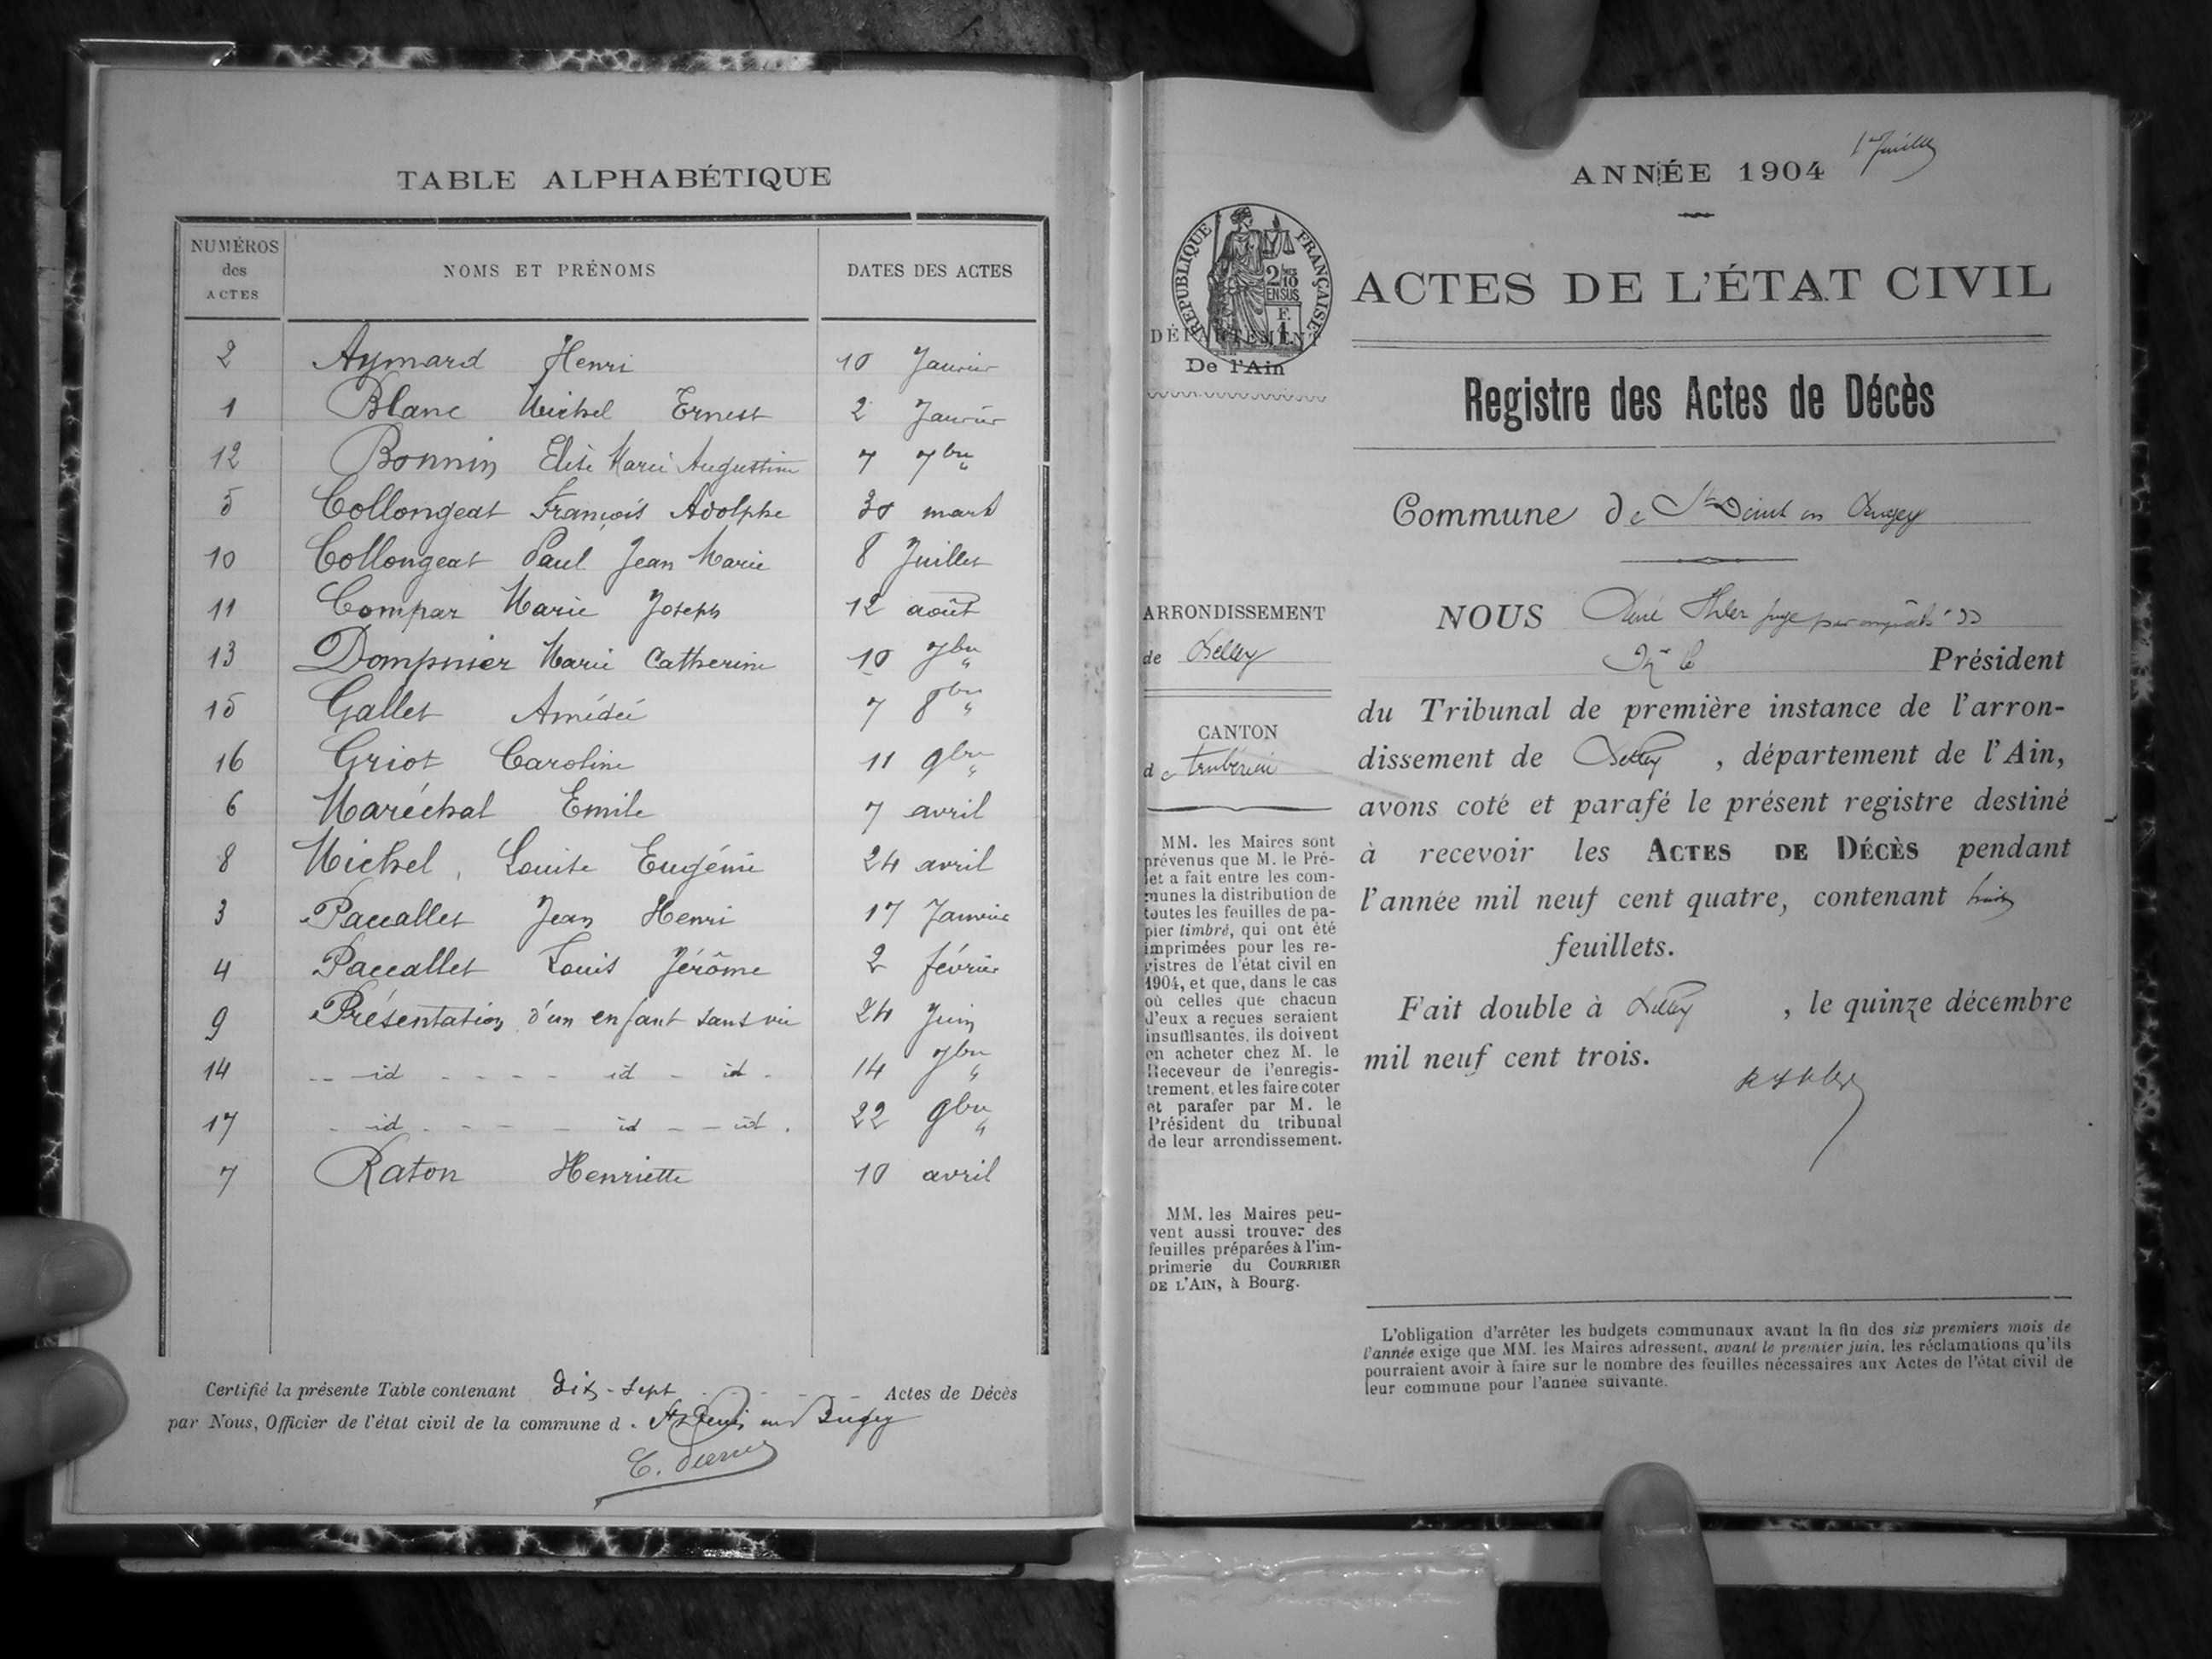 TABLE ALPHABÉTIQUE
NUMÉROS des ACTES NOMS ET PRÉNOMS DATES DES ACTES
2 Aymard Henri 10 Janvier
1 Blanc Michel Ernest 2 Janvier
12 Bonnin Elise Marie Augustine 7 7bre
5 Collongeat François Adolphe 30 mars
10 Collongeat Paul Jean Marie 8 Juillet
11 Compar Marie Joseph 12 août
13 Dompnier Marie Catherine 10 7bre
15 Gallet Amédée 7 8bre
16 Griot Caroline 11 9bre
6 Maréchal Emile 7 avril
8 Michel, Louise Eugénie 24 avril
3 Paccallet Jean Henri 17 Janvier
4 Paccallet Louis Jérôme 2 février
9 Présentation d'un enfant sans vie 24 Juin
14 -- id - - - - id - id - 14 7bre
17 - id - - - - id - - id . 22 9bre
7 Raton Henriette 10 avril
Certifié la présente Table contenant dix-sept Actes de Décès
par Nous, Officier de l'état civil de la commune d. St Denis en Bugey
ANNÉE 1904
RÉPUBLIQUE FRANÇAISE
2/10 EN SUS
F. 1.
DÉPARTEMENT
De l'Ain
ACTES DE L'ÉTAT CIVIL
Registre des Actes de Décès
Commune de St Denis en Bugey
ARRONDISSEMENT
de Belley
CANTON
de
MM. les Maires sont
prévenus que M. le Pré-
fet a fait entre les com-
munes la distribution de
toutes les feuilles de pa-
pier timbré, qui ont été
imprimées pour les re-
gistres de l'état civil en
1904, et que, dans le cas
où celles que chacun
d'eux a reçues seraient
insuffisantes, ils doivent
en acheter chez M. le
Receveur de l'enregis-
trement, et les faire coter
et parafer par M. le
Président du tribunal
de leur arrondissement.
MM. les Maires peu-
vent aussi trouver des
feuilles préparées à l'im-
primerie du COURRIER
DE L'AIN, à Bourg.
NOUS
Président
du Tribunal de première instance de l'arron-
dissement de Belley, département de l'Ain,
avons coté et parafé le présent registre destiné
à recevoir les ACTES DE DÉCÈS pendant
l'année mil neuf cent quatre, contenant
feuillets.
Fait double à Belley, le quinze décembre
mil neuf cent trois.
L'obligation d'arrêter les budgets communaux avant la fin des six premiers mois de
l'année exige que MM. les Maires adressent, avant le premier juin, les réclamations qu'ils
pourraient avoir à faire sur le nombre des feuilles nécessaires aux Actes de l'état civil de
leur commune pour l'année suivante.